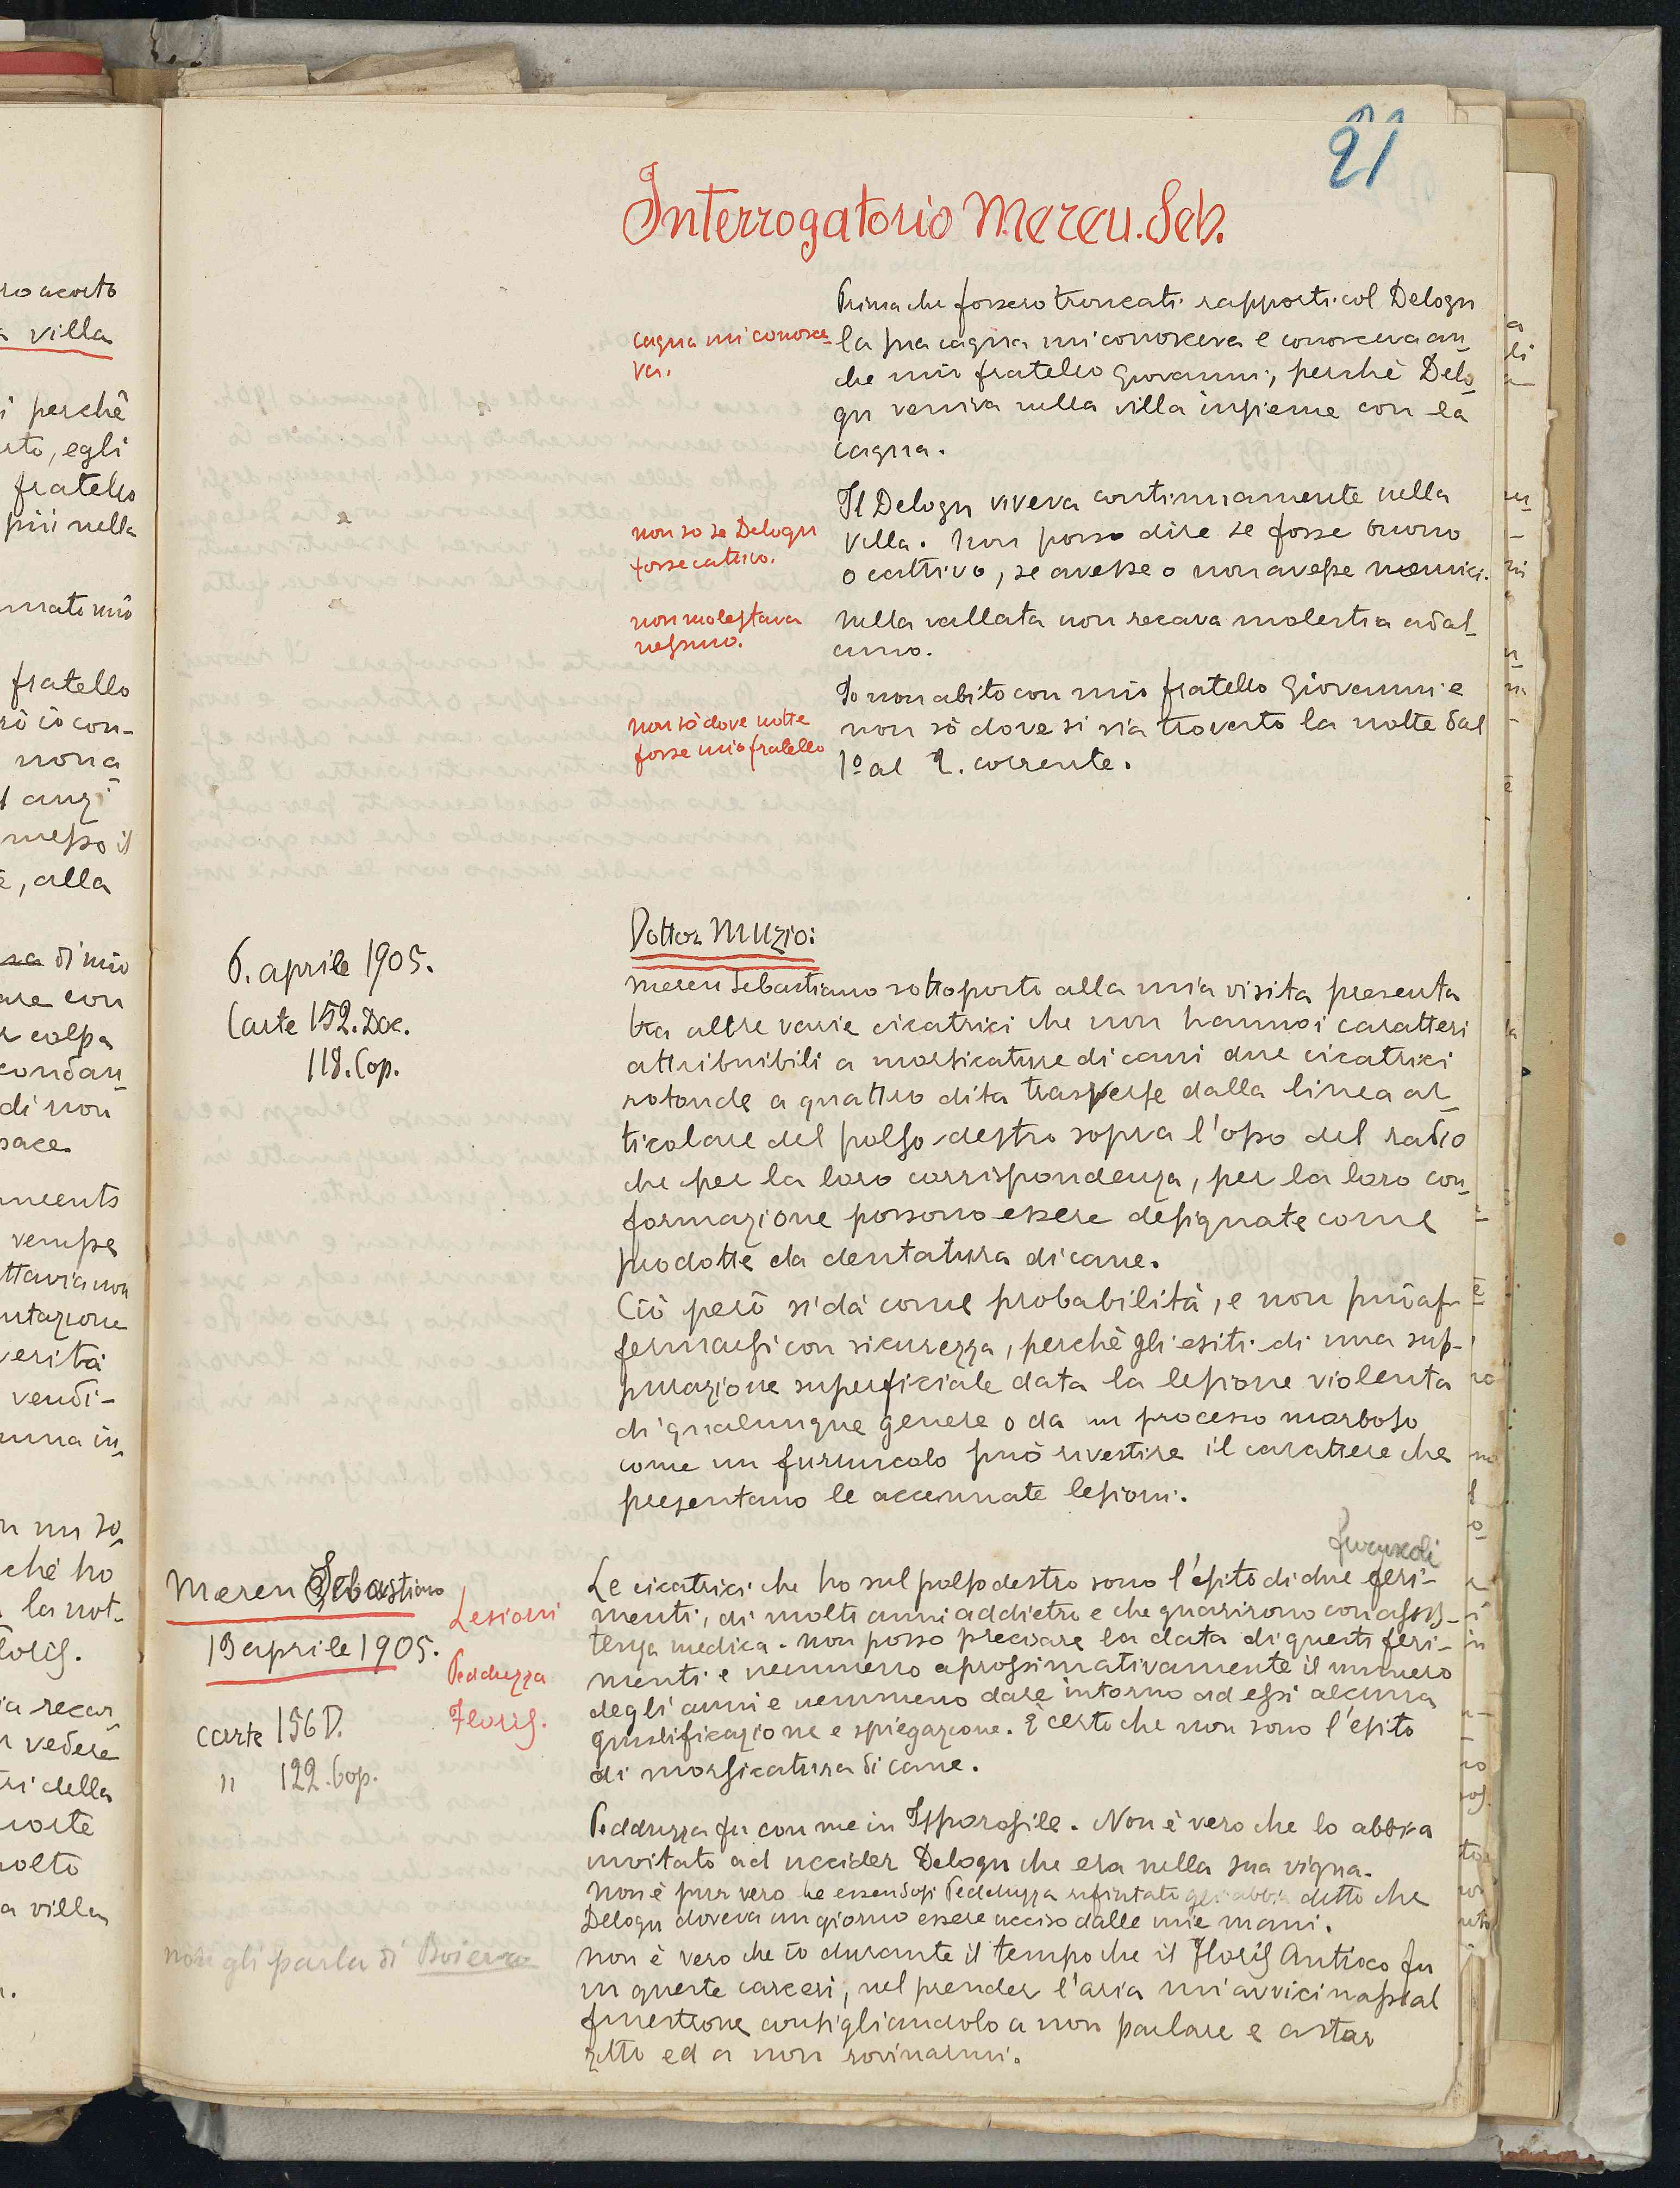 21
Interrogatorio Mereu. Seb.
Prima che fossero troncati rapporti col Delogu
cagna mi conosce-
va.
la sua cagna mi conosceva e conosceva an-
che mio fratello Giovanni, perchè Delo-
gu veniva nella villa insieme con la
cagna.
Il Delogu viveva continuamente nella
non so se Delogu
fosse cattivo.
villa. Non posso dire se fosse buono
o cattivo, se avesse o non avesse nemici.
non molestava
nessuno.
Nella vallata non recava molestia ad al-
cuno.
Io non abito con mio fratello Giovanni e
non sò dove notte
fosse mio fratello
non sò dove si sia trovato la notte dal
1º al 2. corrente.
6. aprile 1905.
Carte 152. Doc.
118. Cop.
Dottor Muzio:
Mereu Sebastiano sottoposto alla mia visita presenta
tra altre varie cicatrici che non hanno i caratteri
attribuibili a morsicature di cani due cicatrici
rotonde a quattro dita trasverse dalla linea ar-
ticolare del polso destro sopra l'osso del radio
che per la loro corrispondenza, per la loro con-
formazione possono essere designate come
prodotte da dentatura di cane.
Ciò però si dà come probabilità, e non può af-
fermarsi con sicurezza, perchè gli esiti di una sup-
purazione superficiale data la lesione violenta
di qualunque genere o da un processo morboso
come un furuncolo può rivestire il carattere che
presentano le accennate lesioni.
Mereu Sebastiano
19 aprile 1905.
carte 156 D.
" 122. Cop.
Lesioni
Pedduzza
Floris.
furuncoli
Le cicatrici che ho sul polso destro sono l'esito di due feri-
menti, di molti anni addietro e che guarirono con assis-
tenza medica. Non posso precisare la data di questi feri-
menti e nemmeno aprossimativamente il numero
degli anni e nemmeno dare intorno ad essi alcuna
giustificazione e spiegazione. È certo che non sono l'esito
di morsicatura di cane.
Pedduzza fu con me in Isporosile. Non è vero che lo abbia
invitato ad uccider Delogu che era nella sua vigna.
Non è pur vero che essendosi Pedduzza rifiutato gli abbia detto che
Delogu doveva un giorno essere ucciso dalle mie mani.
non gli parla di
Non è vero che io durante il tempo che il Floris Antioco fu
in queste carceri, nel prender l'aria mi avvicinassi al
finestrone consigliandolo a non parlare e a star
zitto ed a non rovinarmi.